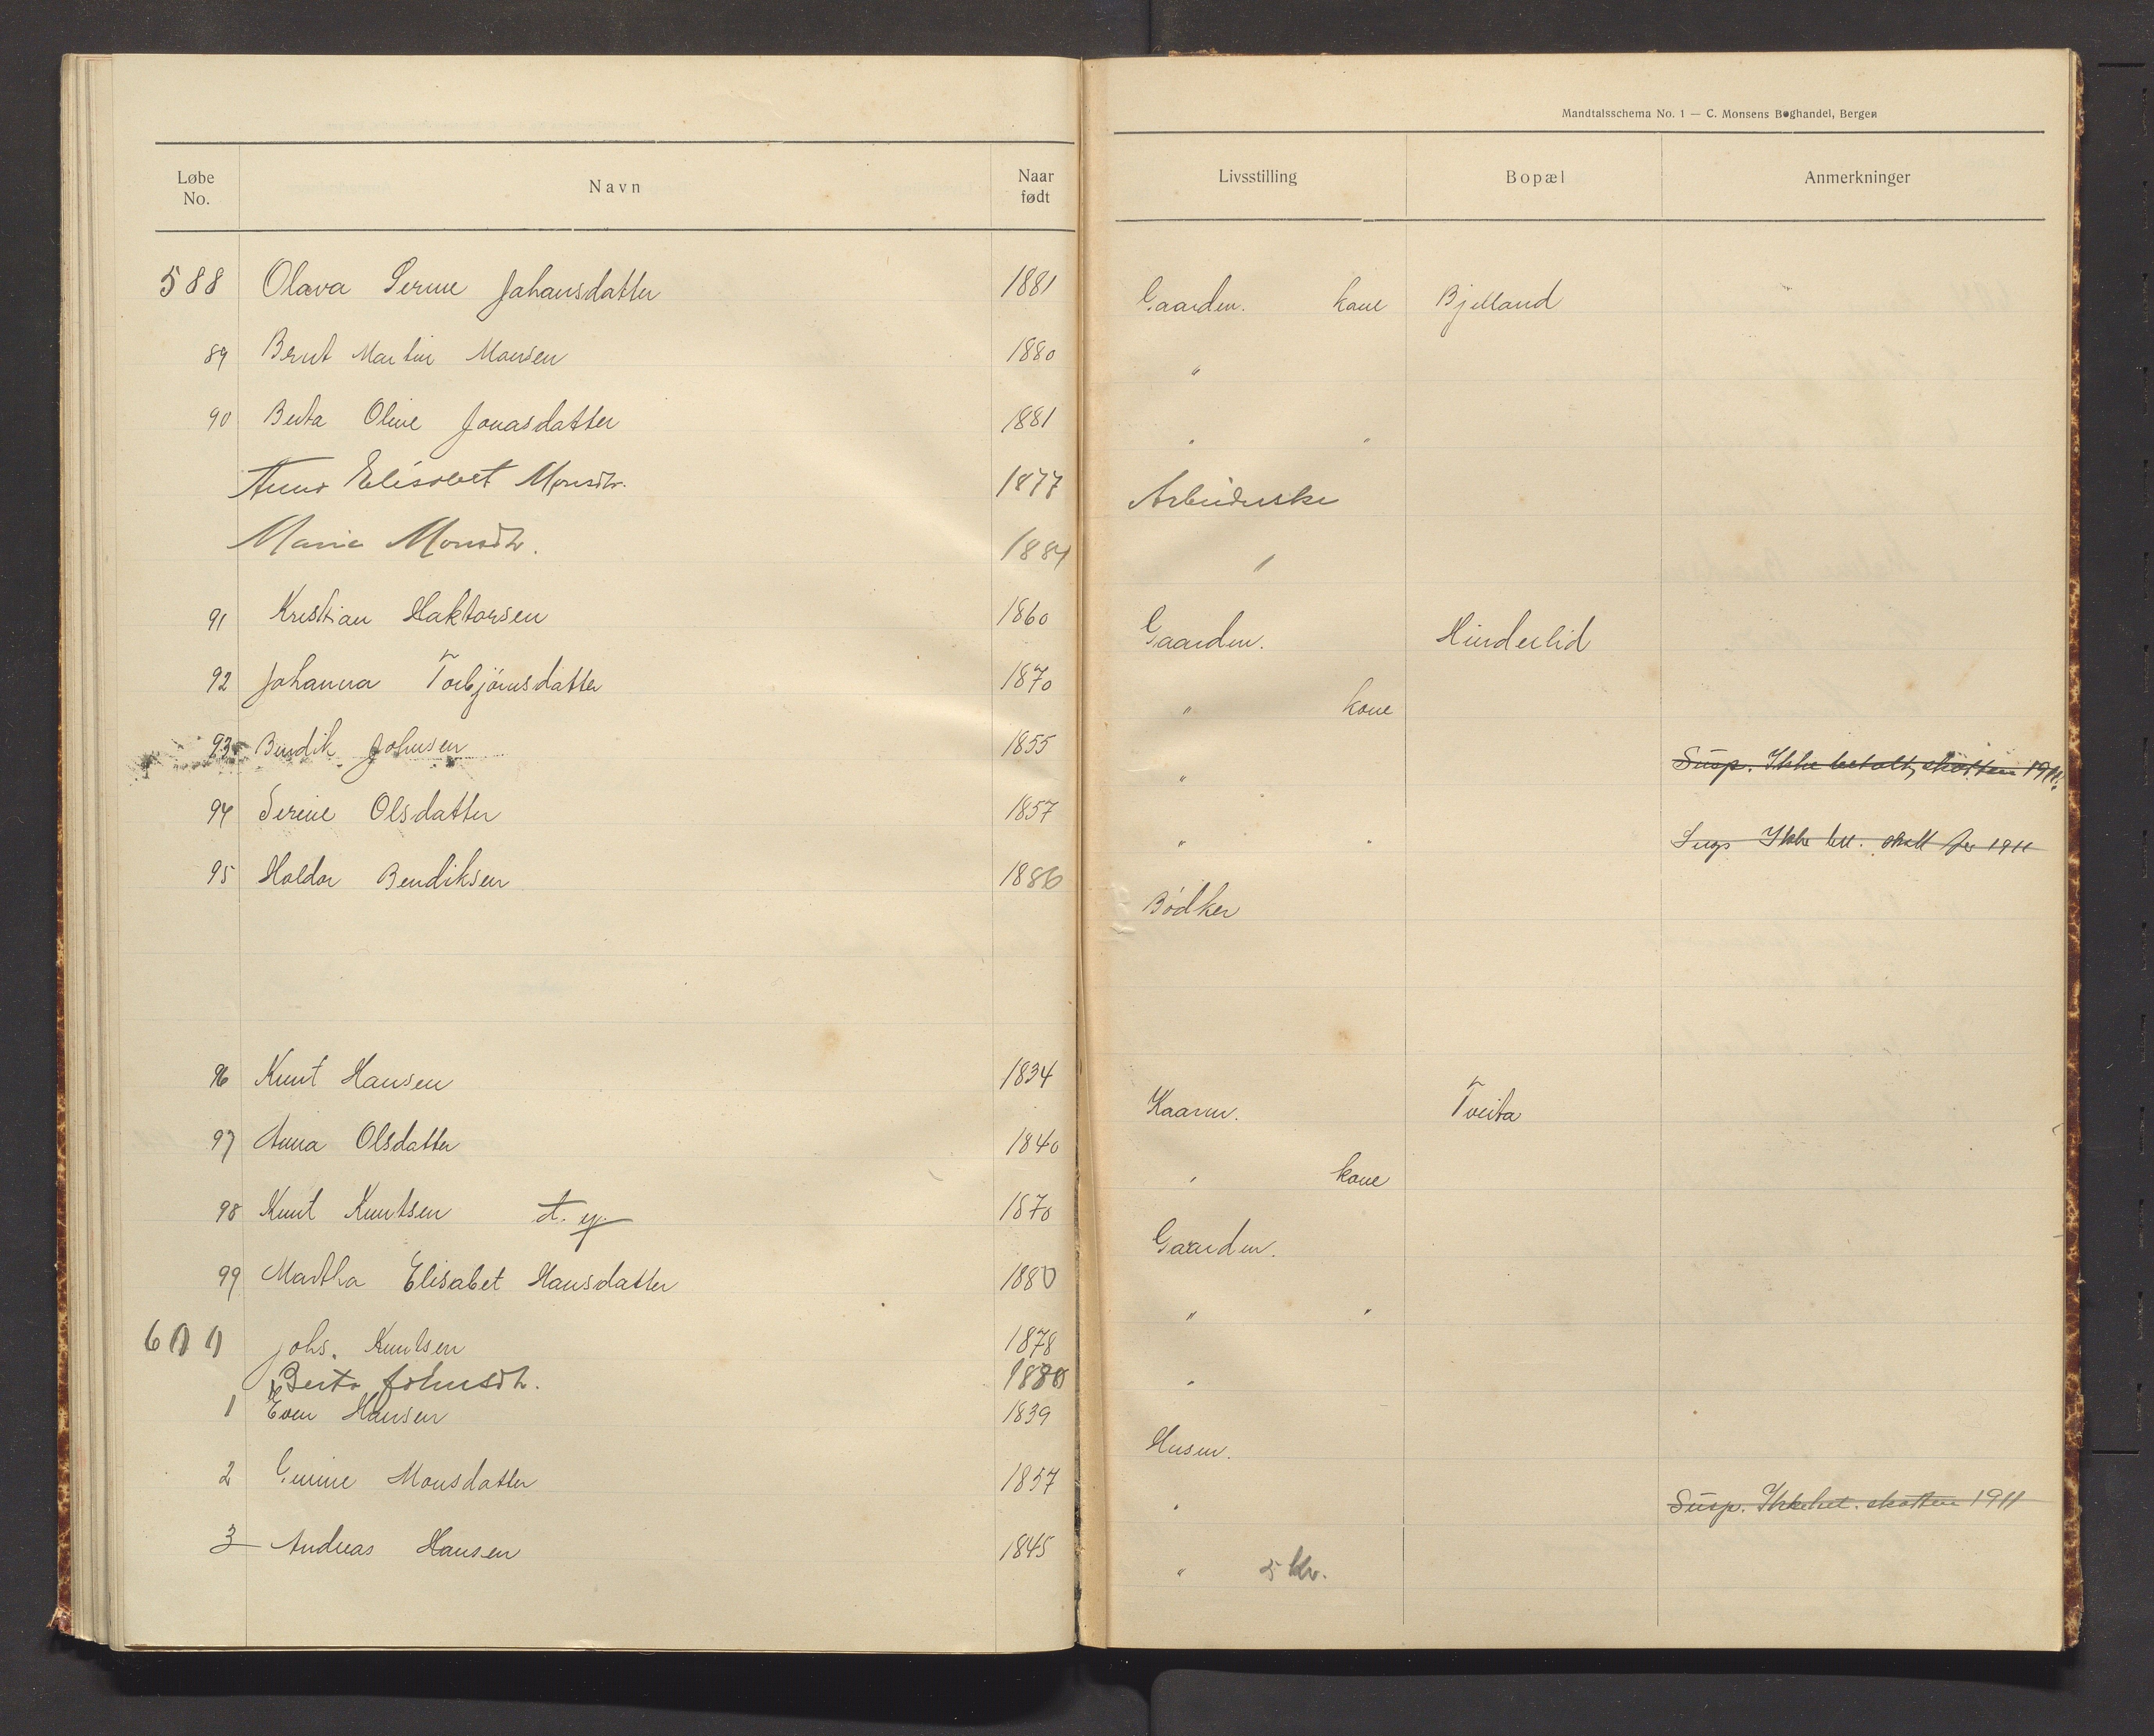 Mandtalsschema No. 1 — C. Monsens Boghandel, Bergen
Løbe No. Navn Naar født Livsstilling Bopæl Anmerkninger
588 Olava Serine Johansdatter 1881 Gaardm. kone Bjelland
89 Bernt Martin Monsen 1880 "
90 Berta Oline Jonasdatter 1881 " "
Anna Elisabet Monsdtr. 1877 Arbeiderske
Marie Monsdtr. 1884 "
91 Kristian Haktorsen 1860 Gaardm. Hinderlid
92 Johanna Torbjörnsdatter 1870 " kone
93 Bendik Johnsen 1855 " Susp. Ikke betalt skatten 1911.
94 Serine Olsdatter 1857 " " Susp Ikke bet. skatt for 1911
95 Haldor Bendiksen 1886 Bödker
96 Knut Hansen 1834 Kaarm. Tveita
97 Anna Olsdatter 1840 " kone
98 Knut Knutsen 1870 Gaardm.
99 Martha Elisabet Hansdatter 1880 " "
600 Johs. Knutsen 1878 "
Berta Johnsdtr. 1880
1 Even Hansen 1839 Husm.
2 Gurine Monsdatter 1857 " Susp. Ikke bet. skatten 1911
3 Andreas Hansen 1845 " 5 kr.